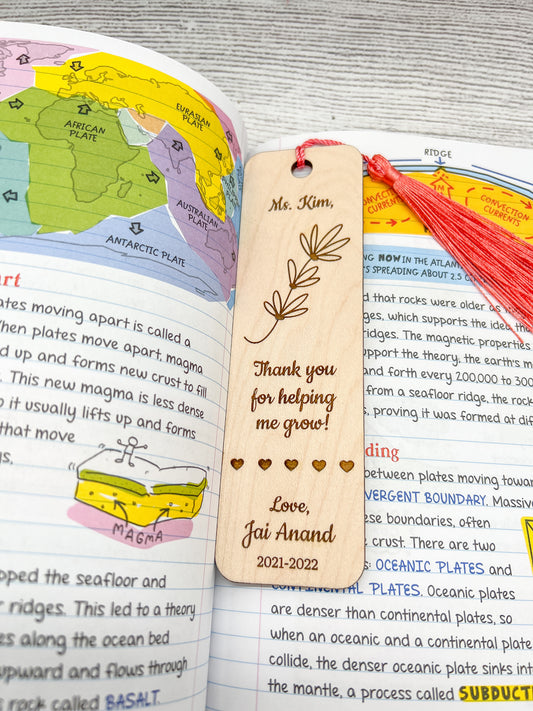 EURASIAN
PLATE
AFRICAN
PLATE
AUSTRALIAN
PLATE
ANTARCTIC PLATE
art
plates moving apart is called a
When plates move apart, magma
up and forms new crust to fill
This new magma is less dense
it usually lifts up and forms
that move
MAGMA
the seafloor and
ridges. This led to a theory
along the ocean bed
upward and flows through
rock called BASALT.
Ms. Kim,
Thank you
for helping
me grow!
Love,
Jai Anand
2021-2022
RIDGE
CONVECTION
CURRENTS
CONVECTION
CURRENTS
NOW IN THE ATLANTIC
SPREADING ABOUT 2.5
that rocks were older as
which supports the idea
ridges. The magnetic properties
support the theory; the earth's
and forth every 200,000 to
from a seafloor ridge, the
proving it was formed at
between plates moving
Massive
boundaries, often
crust. There are two
OCEANIC PLATES and
CONTINENTAL PLATES. Oceanic plates
are denser than continental plates, so
when an oceanic and a continental plate
collide, the denser oceanic plate sinks
the mantle, a process called SUBDUCT